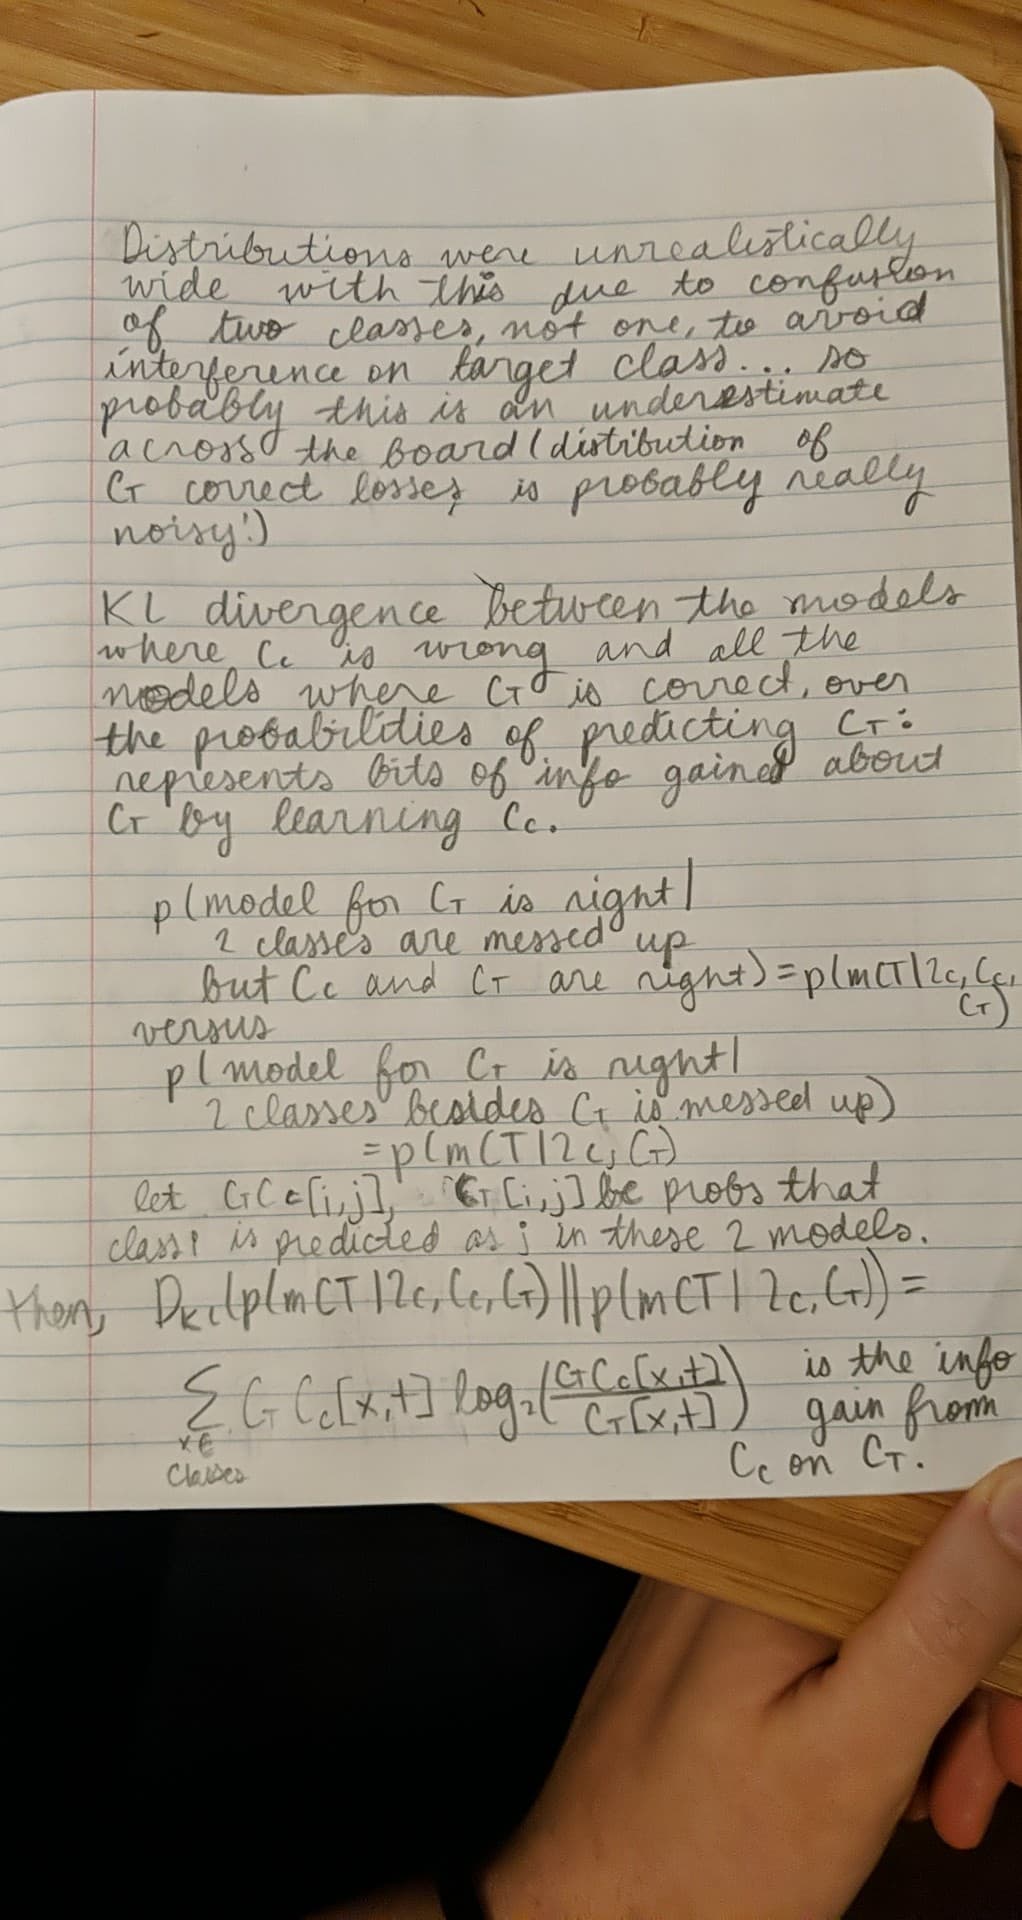 Distributions were unrealistically
wide with this due to confusion
of two classes, not one, to avoid
interference on target class... so
probably this is an underestimate
across the board (distibution of
CT correct losses is probably really
noisy!)
KL divergence between the models
where Cc is wrong and all the
models where CT is correct, over
the probabilities of predicting CT:
represents bits of info gained about
CT by learning Cc.
p(model for CT is right|
2 classes are messed up
but Cc and CT are right) = p(mCT|2c, Cc,
CT)
versus
p(model for CT is right|
2 classes besides CT is messed up)
= p(mCT|2c, CT)
let CTCc[i,j], CT[i,j] be probs that
class i is predicted as j in these 2 models.
then, DKL(p(mCT|2c, Cc, CT) || p(mCT|2c, CT)) =
Σ CTCc[x,t] log₂(CTCc[x,t]/CT[x,t]) is the info
x∈ gain from
Classes Cc on CT.